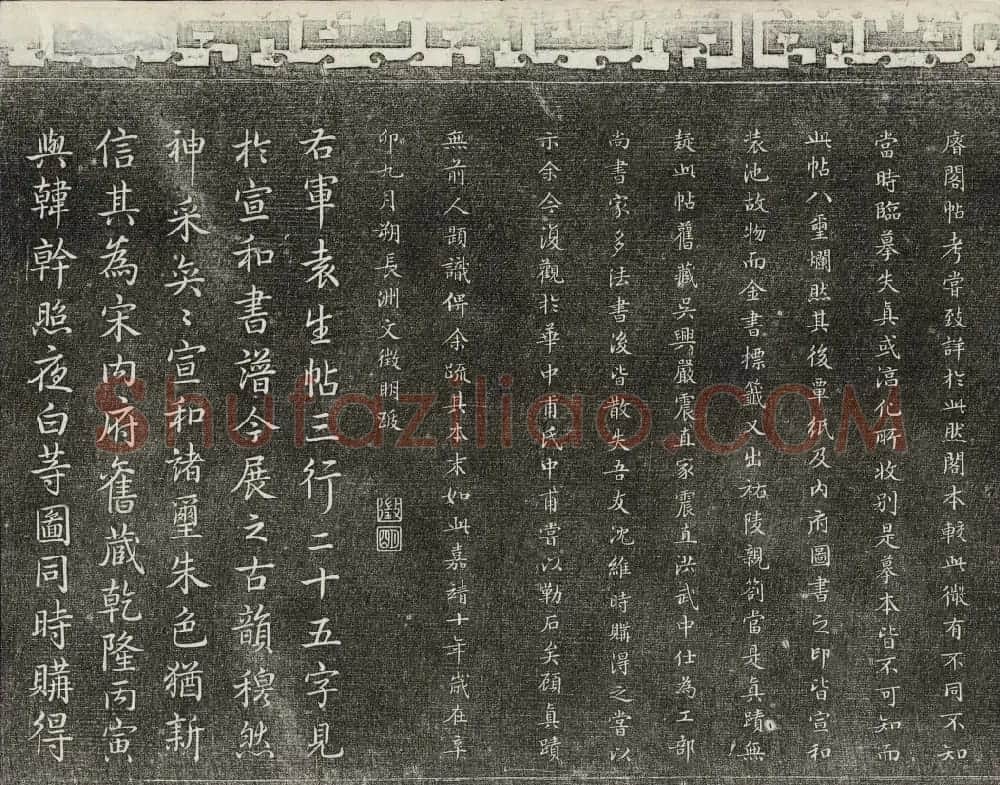 睿閣帖考嘗致詳於此然閣本較此微有不同不知
當時臨摹失真或淳化所收別是摹本皆不可知而
此帖八璽爛然其後覃紙及內府圖書之印皆宣和
裝池故物而金書標籤又出祐陵親劄當是真蹟無
疑此帖舊藏吳興嚴震直家震直洪武中仕為工部
尚書家多法書後皆散失吾友沈維時購得之嘗以
示余今復觀於華中甫氏中甫嘗以勒石矣顧真蹟
無前人題識俾余疏其本末如此嘉靖十年歲在辛
卯九月朔長洲文徵明跋
徵
明
右軍袁生帖三行二十五字見
於宣和書譜今展之古韻穆然
神采奕〻宣和諸璽朱色猶新
信其為宋內府舊藏乾隆丙寅
與韓幹照夜白等圖同時購得
Shufaziliao.COM